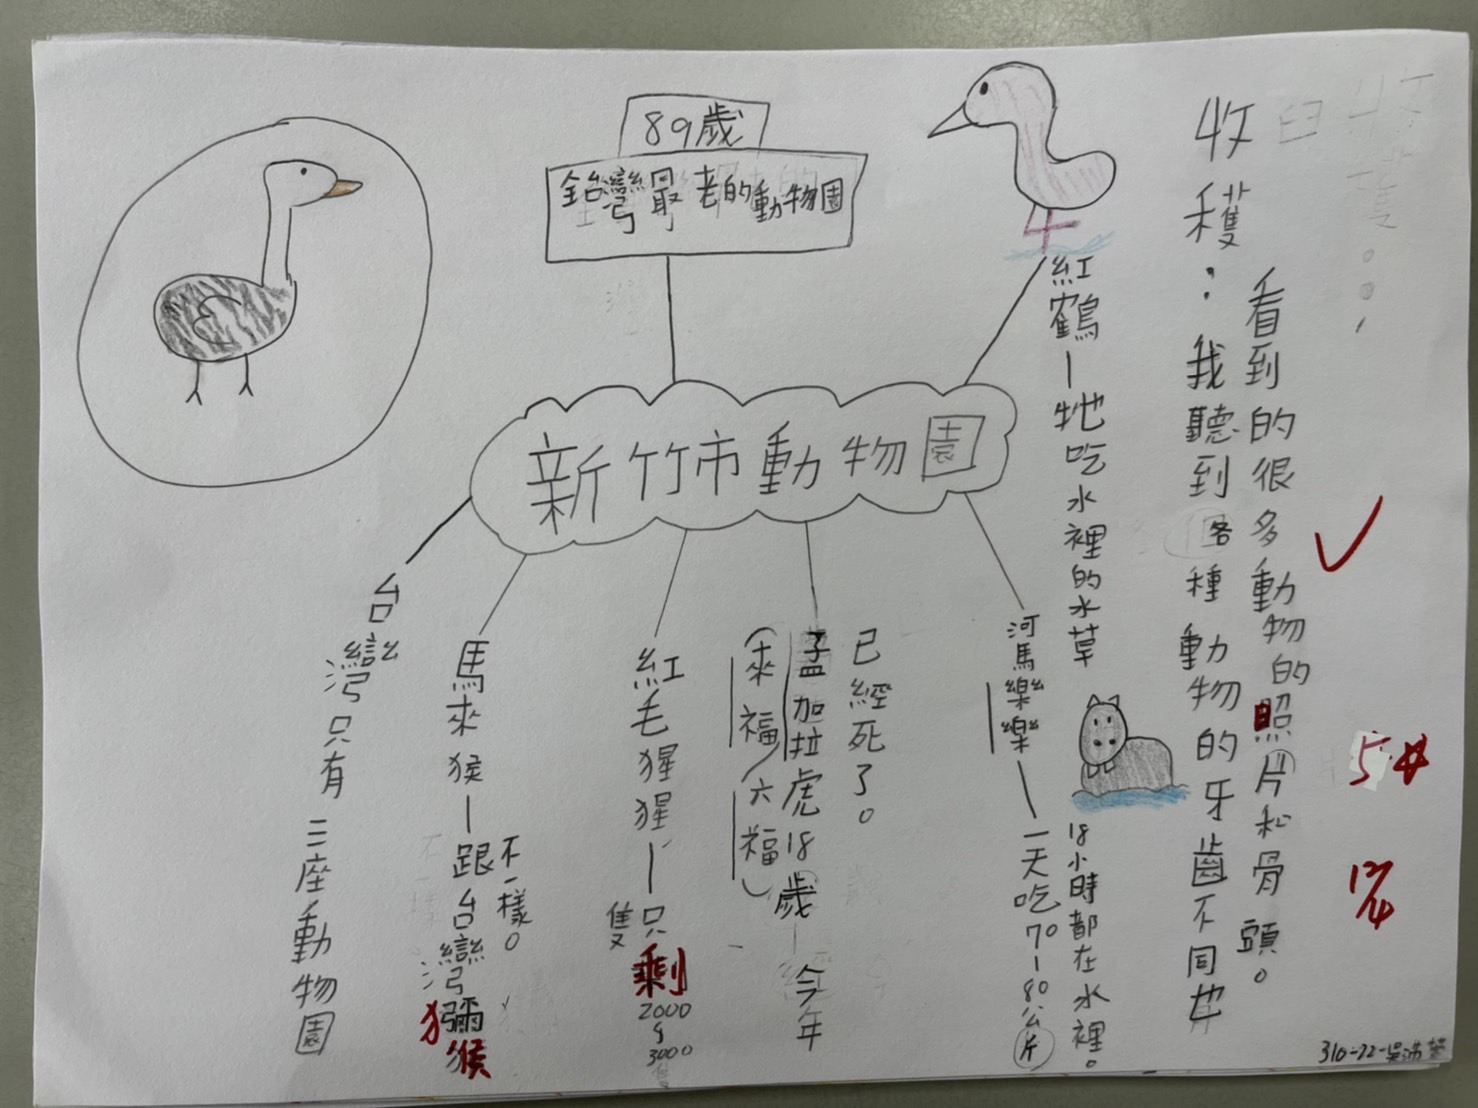 89歲
全台灣最老的動物園
新竹市動物園
紅鶴－牠吃水裡的水草
收穫：我聽到各種動物的牙齒不同也
看到的很多動物的照片和骨頭。
河馬樂樂－一天吃70-80公斤
18小時都在水裡。
已經死了。
孟加拉虎18歲－今年
（來福/六福）
紅毛猩猩－只剩2000~3000隻
隻
馬來猴－跟台灣獼猴
不一樣。
台灣只有三座動物園
5
310-22-吳